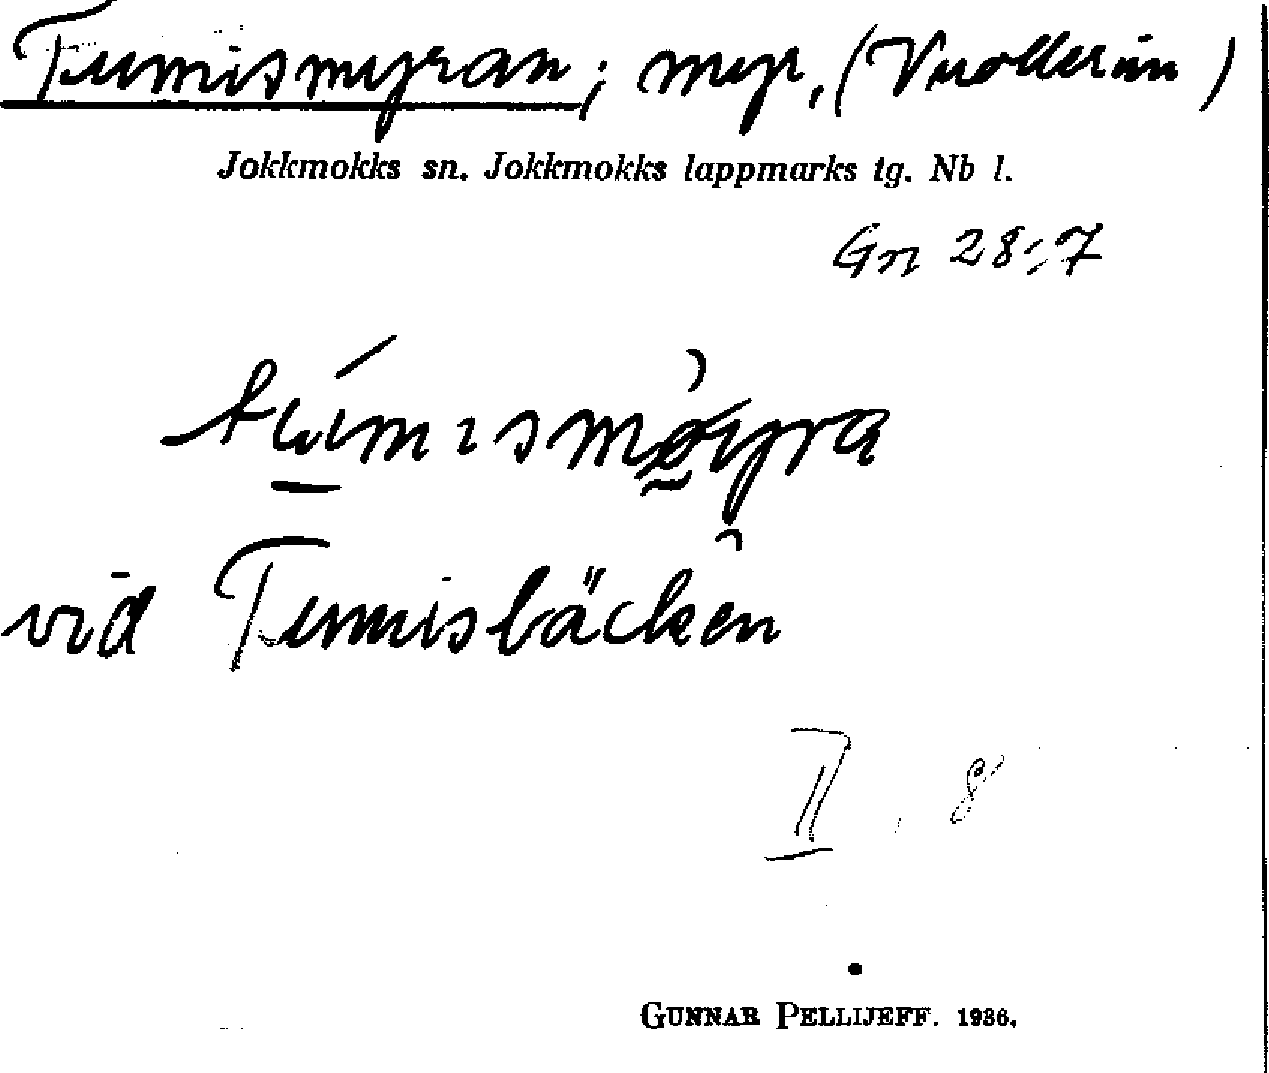 Tumismyran; myr, (Vuollerim)
Jokkmokks sn. Jokkmokks lappmarks tg. Nb l.
Gn 28:7
vid Tumisbäcken
II, 8
GUNNAR PELLIJEFF. 1936.